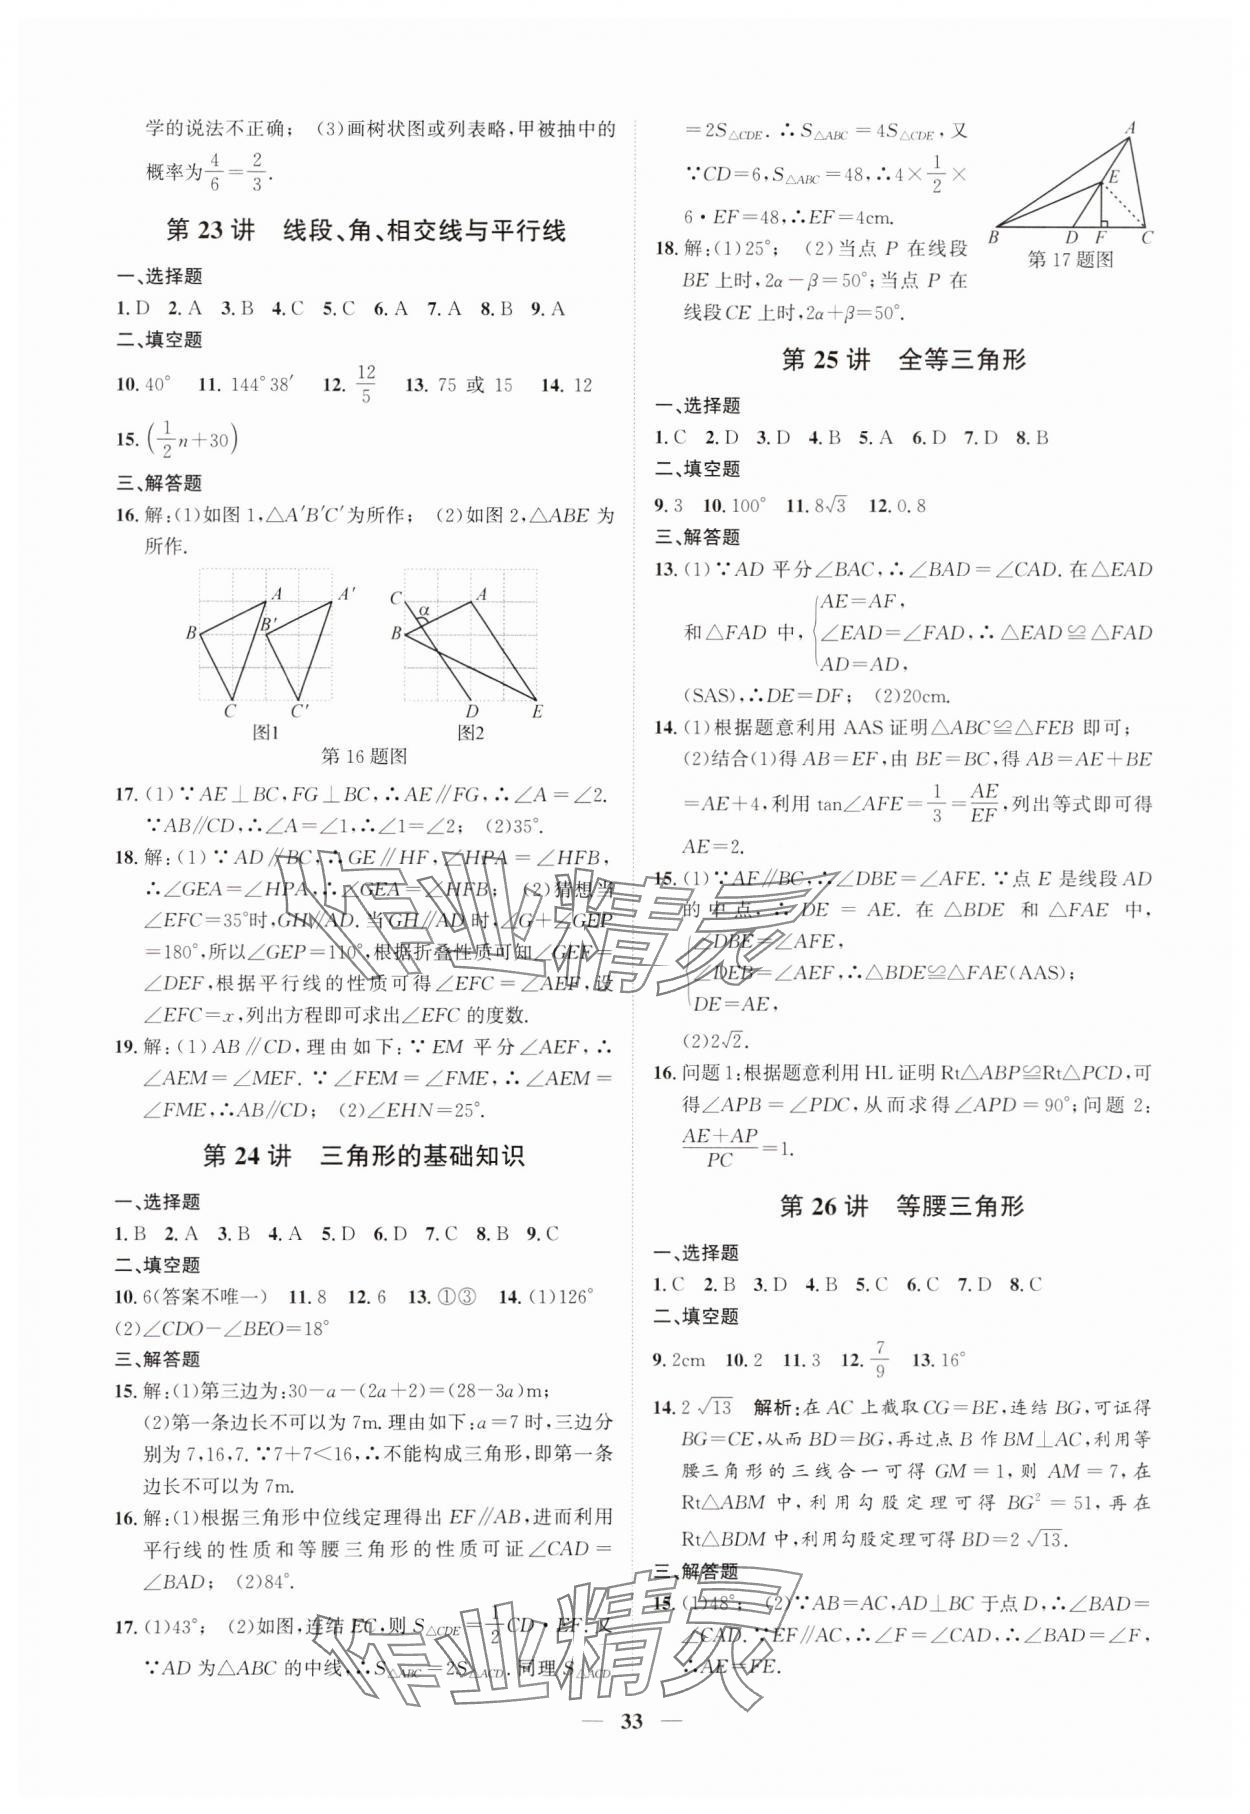 学的说法不正确； (3)画树状图或列表略，甲被抽中的
概率为4/6=2/3.
第 23 讲 线段、角、相交线与平行线
一、选择题
1. D 2. A 3. B 4. C 5. C 6. A 7. A 8. B 9. A
二、填空题
10. 40° 11. 144°38′ 12. 12/5 13. 75 或 15 14. 12
15. (1/2 n+30)
三、解答题
16. 解：(1)如图 1，△A′B′C′为所作； (2)如图 2，△ABE 为
所作.
A A′ B B′ C C′
图1
C A α B D E
图2
第 16 题图
17. (1)∵AE⊥BC，FG⊥BC，∴AE∥FG，∴∠A=∠2.
∵AB∥CD，∴∠A=∠1，∴∠1=∠2； (2)35°.
18. 解：(1)∵AD∥BC，∴GE∥HF，∠HPA=∠HFB，
∴∠GEA=∠HPA，∴∠GEA=∠HFB； (2)猜想当
∠EFC=35°时，GH∥AD. 当GH∥AD 时，∠G+∠GEP
=180°，所以∠GEP=110°，根据折叠性质可知∠GEE=
∠DEF，根据平行线的性质可得∠EFC=∠AEF，设
∠EFC=x，列出方程即可求出∠EFC 的度数.
19. 解：(1)AB∥CD，理由如下：∵EM 平分∠AEF，∴
∠AEM=∠MEF. ∵∠FEM=∠FME，∴∠AEM=
∠FME，∴AB∥CD； (2)∠EHN=25°.
第 24 讲 三角形的基础知识
一、选择题
1. B 2. A 3. B 4. A 5. D 6. D 7. C 8. B 9. C
二、填空题
10. 6(答案不唯一) 11. 8 12. 6 13. ①③ 14. (1)126°
(2)∠CDO－∠BEO=18°
三、解答题
15. 解：(1)第三边为：30－a－(2a+2)=(28－3a)m；
(2)第一条边长不可以为 7m. 理由如下：a=7 时，三边分
别为 7，16，7. ∵7+7＜16，∴不能构成三角形，即第一条
边长不可以为 7m.
16. 解：(1)根据三角形中位线定理得出 EF∥AB，进而利用
平行线的性质和等腰三角形的性质可证∠CAD=
∠BAD； (2)84°.
17. (1)43°； (2)如图，连结 EC，则 S△CDE=1/2CD·EF. 又
∵AD 为△ABC 的中线，∴S△ABC=2S△ACD. 同理 S△ACD
=2S△CDE. ∴S△ABC=4S△CDE，又
∵CD=6，S△ABC=48，∴4×1/2×
6·EF=48，∴EF=4cm.
A E B D F C
第 17 题图
18. 解：(1)25°； (2)当点 P 在线段
BE 上时，2α－β=50°；当点 P 在
线段CE 上时，2α+β=50°.
第 25 讲 全等三角形
一、选择题
1. C 2. D 3. D 4. B 5. A 6. D 7. D 8. B
二、填空题
9. 3 10. 100° 11. 8√3 12. 0.8
三、解答题
13. (1)∵AD 平分∠BAC，∴∠BAD=∠CAD. 在△EAD
和△FAD 中，{AE=AF，
∠EAD=∠FAD，∴△EAD≌△FAD
AD=AD，
(SAS)，∴DE=DF； (2)20cm.
14. (1)根据题意利用 AAS 证明△ABC≌△FEB 即可；
(2)结合(1)得 AB=EF，由 BE=BC，得 AB=AE+BE
=AE+4，利用 tan∠AFE=1/3=AE/EF，列出等式即可得
AE=2.
15. (1)∵AF∥BC，∴∠DBE=∠AFE. ∵点 E 是线段 AD
的中点，∴DE=AE. 在△BDE 和△FAE 中，
{∠DBE=∠AFE，
∠DEB=∠AEF，∴△BDE≌△FAE(AAS)；
DE=AE，
(2)2√2.
16. 问题 1：根据题意利用 HL 证明 Rt△ABP≌Rt△PCD，可
得∠APB=∠PDC，从而求得∠APD=90°；问题 2：
(AE+AP)/PC=1.
第 26 讲 等腰三角形
一、选择题
1. C 2. B 3. D 4. B 5. C 6. C 7. D 8. C
二、填空题
9. 2cm 10. 2 11. 3 12. 7/9 13. 16°
14. 2√13 解析：在 AC 上截取CG=BE，连结 BG，可证得
BG=CE，从而 BD=BG，再过点 B 作 BM⊥AC，利用等
腰三角形的三线合一可得 GM=1，则 AM=7，在
Rt△ABM 中，利用勾股定理可得 BG²=51，再在
Rt△BDM 中，利用勾股定理可得 BD=2√13.
三、解答题
15. (1)48°； (2)∵AB=AC，AD⊥BC 于点 D，∴∠BAD=
∠CAD. ∵EF∥AC，∴∠F=∠CAD，∴∠BAD=∠F，
∴AE=FE.
作业精灵
作业精灵
— 33 —